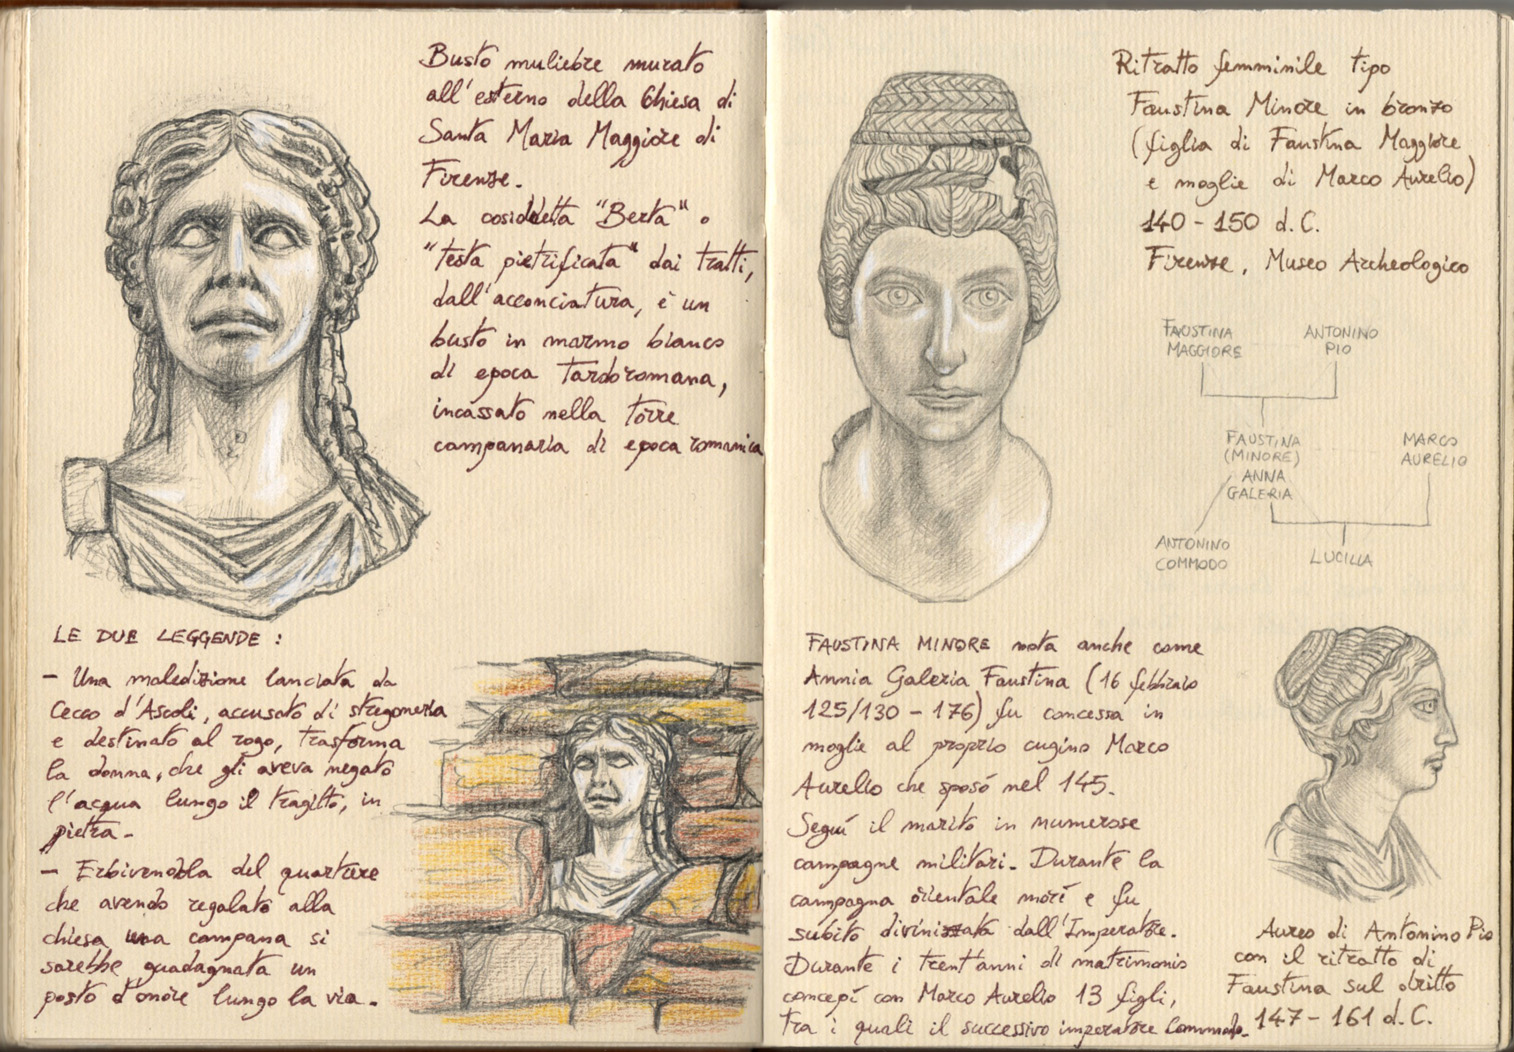 Busto muliebre murato
all'esterno della Chiesa di
Santa Maria Maggiore di
Firenze.
La cosiddetta "Berta" o
"testa pietrificata" dai tratti,
dall'acconciatura, è un
busto in marmo bianco
di epoca tardoromana,
incassato nella torre
campanaria di epoca romanica
LE DUE LEGGENDE :
- Una maledizione lanciata da
Cecco d'Ascoli, accusato di stregoneria
e destinato al rogo, trasforma
la donna, che gli aveva negato
l'acqua lungo il tragitto, in
pietra -
- Erbivendola del quartiere
che avendo regalato alla
chiesa una campana si
sarebbe guadagnata un
posto d'onore lungo la via.
Ritratto femminile tipo
Faustina Minore in bronzo
(figlia di Faustina Maggiore
e moglie di Marco Aurelio)
140 - 150 d.C.
Firenze, Museo Archeologico
FAUSTINA MAGGIORE
ANTONINO PIO
FAUSTINA (MINORE) ANNA GALERIA
MARCO AURELIO
ANTONINO COMMODO
LUCILLA
FAUSTINA MINORE nota anche come
Annia Galeria Faustina (16 febbraio
125/130 - 176) fu concessa in
moglie al proprio cugino Marco
Aurelio che sposò nel 145.
Seguì il marito in numerose
campagne militari. Durante la
campagna orientale morì e fu
subito divinizzata dall'Imperatore.
Durante i trent'anni di matrimonio
concepì con Marco Aurelio 13 figli,
tra i quali il successivo imperatore Commodo.
Aureo di Antonino Pio
con il ritratto di
Faustina sul dritto
147 - 161 d.C.